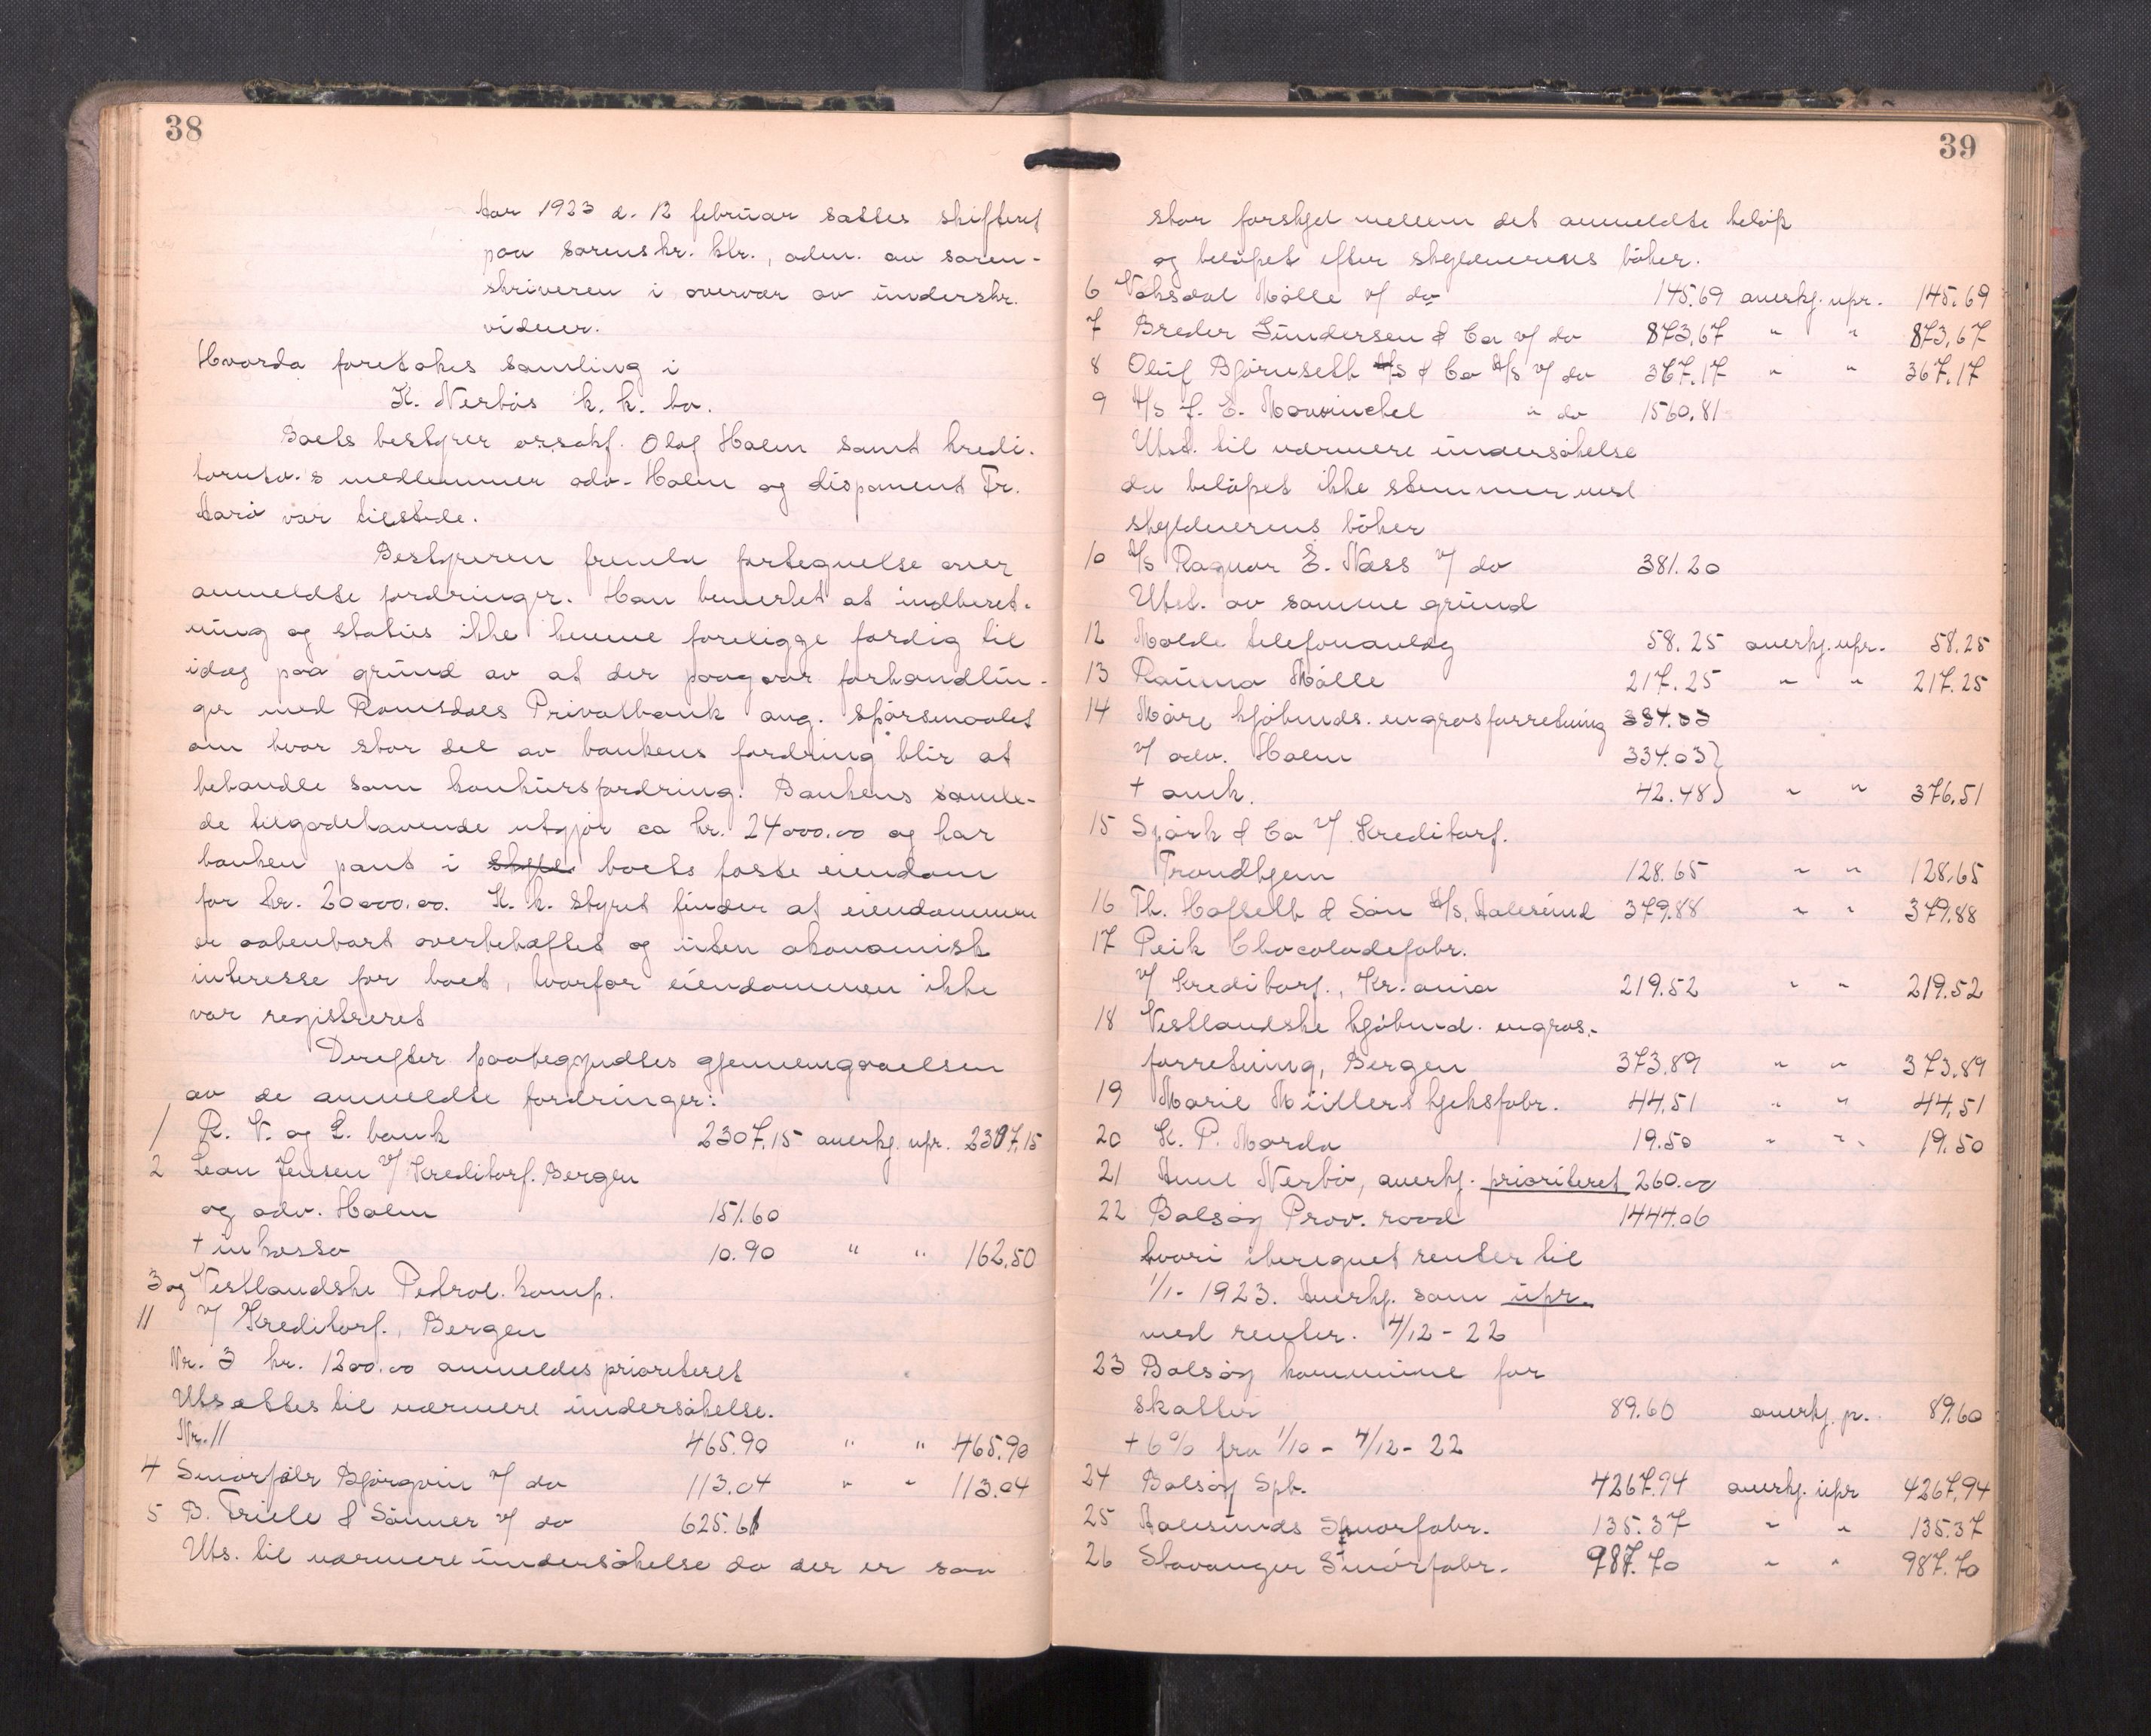 38
Aar 1923 d. 12 februar sattes skifteret
paa sorenskr. ktr., adm. av soren-
skriveren i overvær av underskr.
vidner.
Hvorda foretokes samling i
K. Nerbös k. k. bo.
Boets bestyrer orsakf. Olaf Holm samt kredi-
torutv.s medlemmer adv. Holm og disponent Fr.
Aarö var tilstede.
Bestyreren fremla fortegnelse over
anmeldte fordringer. Han bemerket at indberet-
ning og status ikke kunne foreligge færdig til
idag paa grund av at der paagaar forhandlin-
ger med Romsdals Privatbank ang. spörsmaalet
om hvor stor del av bankens fordring blir at
behandle som konkursfordring. Bankens samle-
de tilgodehavende utgjör ca kr. 24000.00 og har
banken pant i skyld boets faste eiendom
for kr. 20000.00. K. k. styret finder at eiendommen
er aabenbart overbeheftet og uten ökonomisk
interesse for boet, hvorfor eiendommen ikke
var registreret
Derefter paabegyndtes gjennemgaaelsen
av de anmeldte fordringer:
1 R. V. og L. bank 2307.15 anerkj. upr. 2307.15
2 Leon Jensen v/ Kreditorf. Bergen
og adv. Holm 151.60
+ inkasso 10.90 " " 162.50
3 og Vestlandske Petrol. komp.
11 v/ Kreditorf., Bergen
Nr. 3 kr. 1200.00 anmeldes prioriteret
Utsættes til nærmere undersökelse.
Nr. 11 465.90 " " 465.90
4 Smörfabr Björgvin v/ do 113.04 " " 113.04
5 B. Friele & Sönner v/ do 625.61
Uts. til nærmere undersökelse da der er saa
39
stor forskjel mellem det anmeldte belöp
og belöpet efter skyldnerens böker.
6 Vaksdal Mölle v/ do 145.69 anerkj. upr. 145.69
7 Breder Gundersen & Co v/ do 873.67 " " 873.67
8 Oluf Björnseth A/s & Co A/s v/ do 367.17 " " 367.17
9 A/s J. E. Mowinckel " do 1560.81
Utsd. til nærmere undersökelse
da belöpet ikke stemmer med
skyldnerens böker
10 A/s Ragnar E. Næss v/ do 381.20
Utsd. av samme grund
12 Molde telefonanlæg 58.25 anerkj. upr. 58.25
13 Rauma Mölle 217.25 " " 217.25
14 Möre kjöbmds. engrosforretning 334.03
v/ adv. Holm 334.03}
+ omk. 42.48} " " 376.51
15 Spörk & Co v/ Kreditorf.
Trondhjem 128.65 " " 128.65
16 Th. Hofseth & Sön A/s, Aalesund 379.88 " " 379.88
17 Peik Chocoladefabr.
v/ Kreditorf., Kr.ania 219.52 " " 219.52
18 Vestlandske kjöbmd. engros-
forretning, Bergen 373.89 " " 373.89
19 Marie Müllers kjeksfabr. 44.51 " " 44.51
20 K. P. Mordal 19.50 " " 19.50
21 Anne Nerbö, anerkj. prioriteret 260.00
22 Bolsöy Prov. raad 1444.06
hvori iberegnet renter til
1/1- 1923. Anerkj. som upr.
med renter. 4/12 - 22
23 Bolsöy kommune for
skatter 89.60 anerkj. p. 89.60
+ 6% fra 1/10 - 4/12 - 22
24 Bolsöy Spb. 4267.94 anerkj. upr 4267.94
25 Aalesunds Smörfabr. 135.37 " " 135.37
26 Stavanger Smörfabr. 987.70 " " 987.70